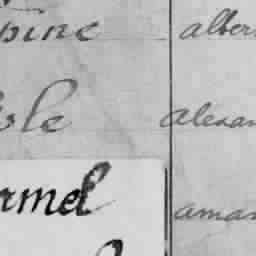 pine alber
sle alexan
rmel aman